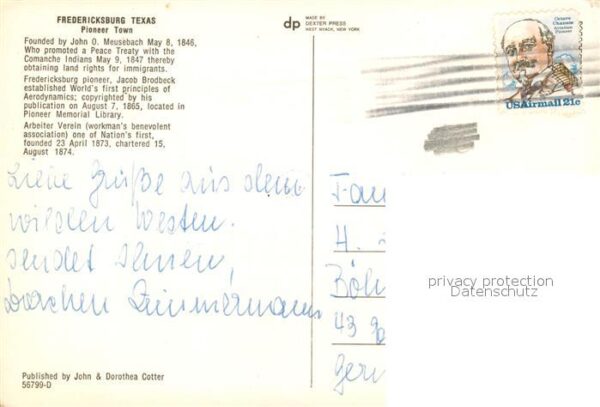 FREDERICKSBURG TEXAS
Pioneer Town
Founded by John O. Meusebach May 8, 1846,
Who promoted a Peace Treaty with the
Comanche Indians May 9, 1847 thereby
obtaining land rights for immigrants.
Fredericksburg pioneer, Jacob Brodbeck
established World's first principles of
Aerodynamics; copyrighted by his
publication on August 7, 1865, located in
Pioneer Memorial Library.
Arbeiter Verein (workman's benevolent
association) one of Nation's first,
founded 23 April 1873, chartered 15,
August 1874.
Liebe Grüße aus dem
wilden Westen.
sendet Ihnen,
Zimmermann
Published by John & Dorothea Cotter
56799-D
dp
MADE BY
DEXTER PRESS
WEST NYACK, NEW YORK
Octave
Chanute
Aviation
Pioneer
USAirmail 21c
Fam
H.
Böh
43
Ger
privacy protection
Datenschutz